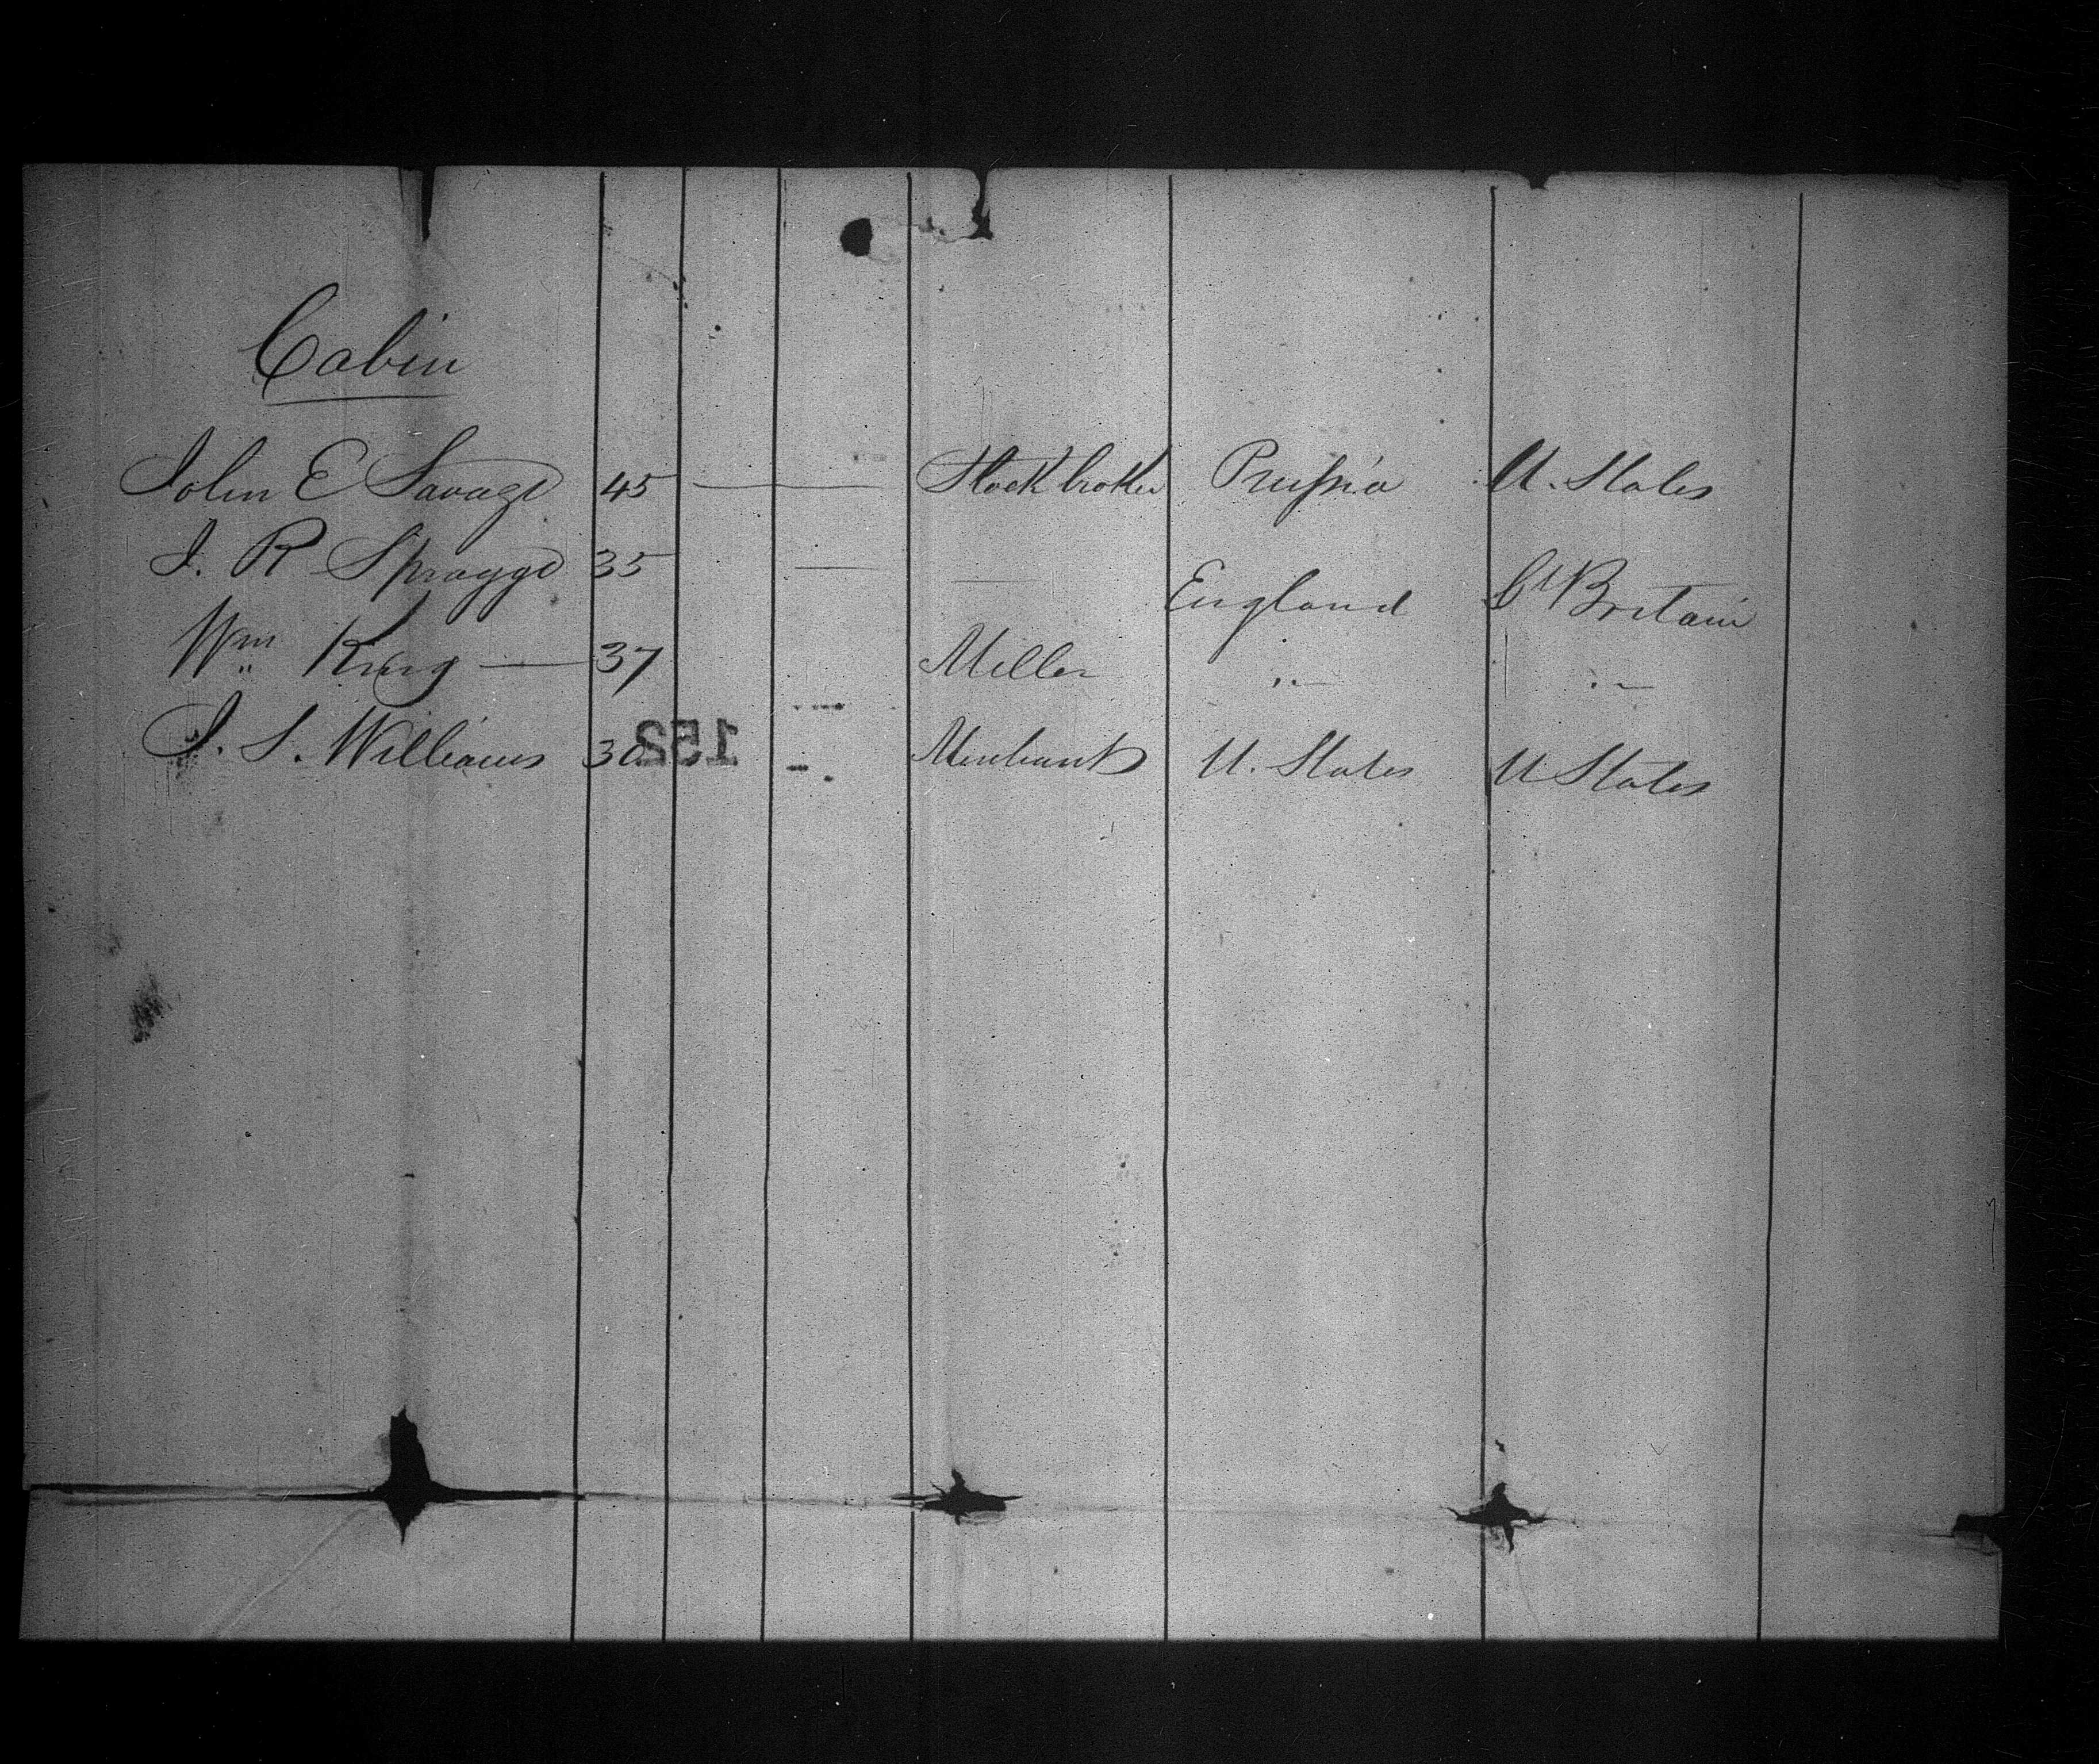 Cabin
John E Savage 45 — Stock broker Prussia U. States
J. R Spragge 35 — — England Gt Britain
Wm King — 37 Miller " "
J. S. Williams 30 Merchant U. States U States
152